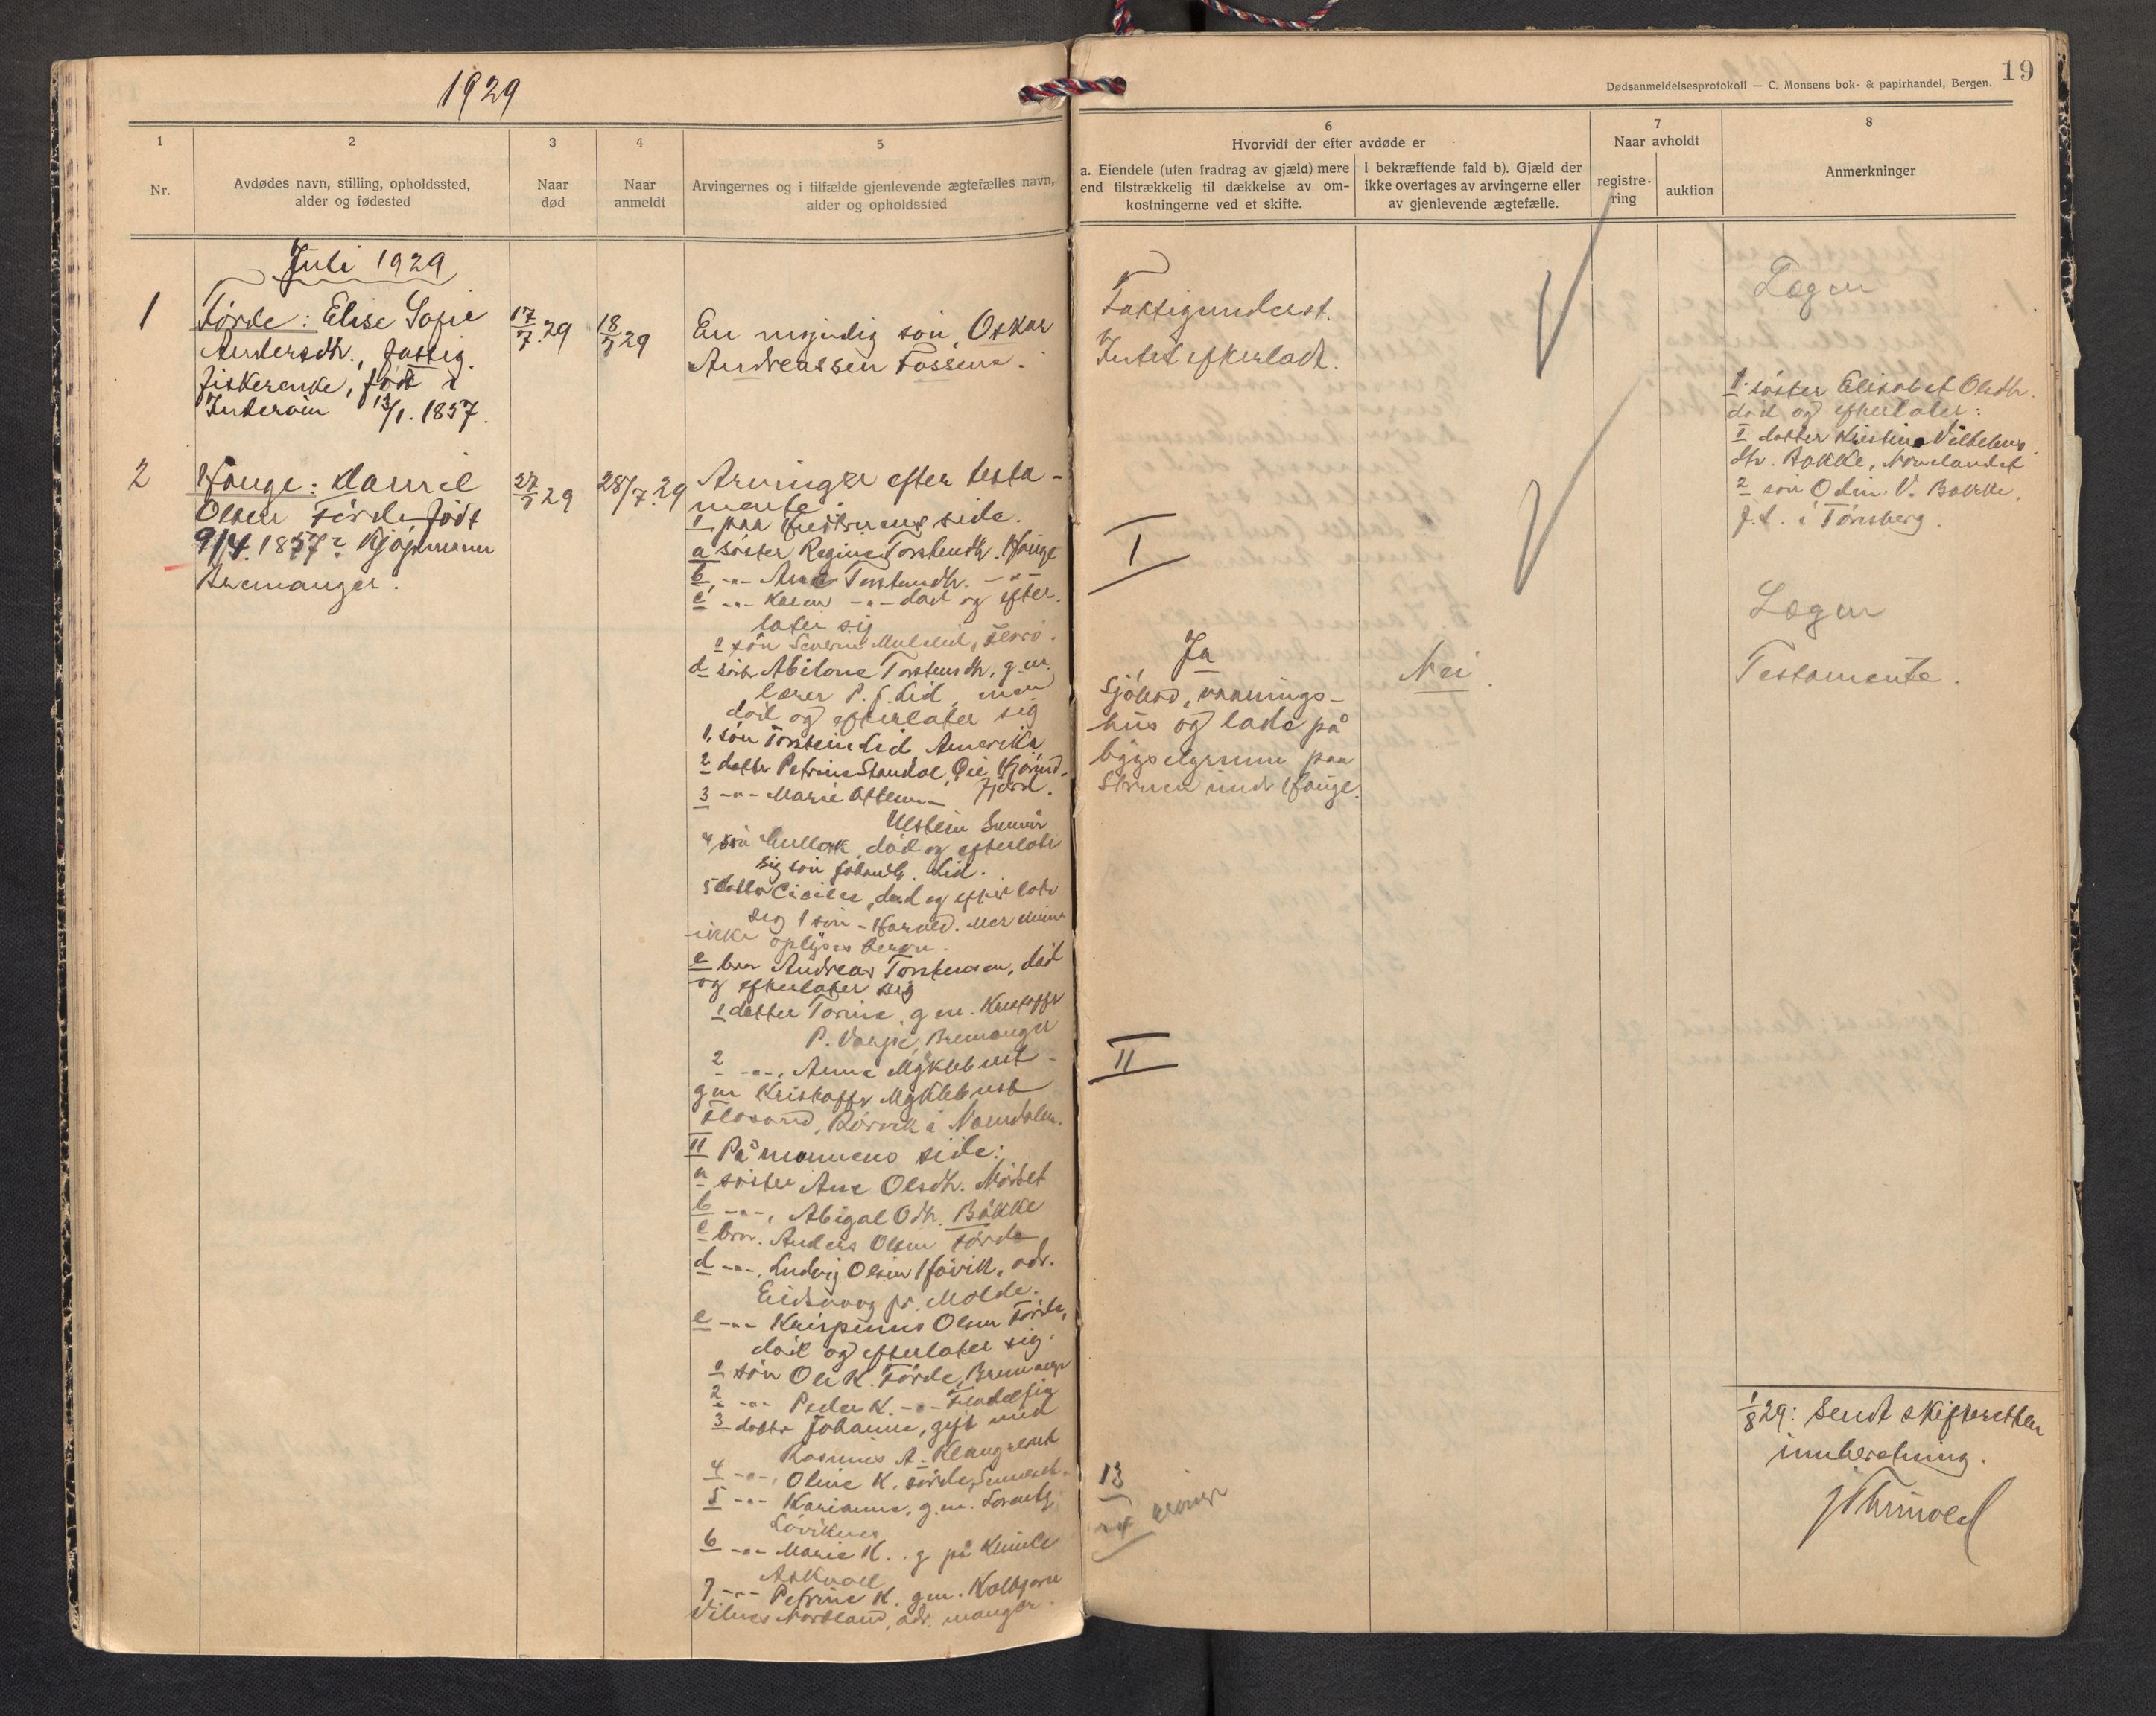 1929
19
Dødsanmeldelsesprotokoll — C. Monsens bok- & papirhandel, Bergen.
1
Nr.
2
Avdødes navn, stilling, opholdssted,
alder og fødested
3
Naar
død
4
Naar
anmeldt
5
Arvingernes og i tilfælde gjenlevende ægtefælles navn,
alder og opholdssted
6
Hvorvidt der efter avdøde er
a. Eiendele (uten fradrag av gjæld) mere
end tilstrækkelig til dækkelse av om-
kostningerne ved et skifte.
I bekræftende fald b). Gjæld der
ikke overtages av arvingerne eller
av gjenlevende ægtefælle.
7
Naar avholdt
registre-
ring
auktion
8
Anmerkninger
Juli 1929
1
Førde: Elise Sofie
Andersdtr., fattig
fiskerenke, født i
13/1. 1857.
17/7. 29
18/7 29
En myndig søn, Oskar
Andreassen
Fattigunderst.
Intet efterladt.
Læger
2
Hauge: Daniel
Olsen Førde født
9/4. 1857? Kjøpmann
Bremanger.
27/7 29
28/7. 29
Arvinger efter testa-
mente:
I paa hustruens side.
a søster Regine Torstendtr. Hauge
b -"- Ane Torstendtr. -"-
c -"- Karen -"- død og efter-
later sig
1 søn Severin
d søster Abilone Torstensdtr, g.m.
lærer P. J. Lid, men
død og efterlater sig
1. søn Torstein Lid Amerika
2 datter Petrine Standal, Øie Hjørund-
fjord.
3 -"- Marie
Ulstein Sunnmør
4 søn død og efterlater
sig søn Lid.
5 datter Cicilie, død og efterlater
sig 1 søn - Harald. Mer kunne
ikke oplyses herom.
e bror Andreas Torstensen, død
og efterlater sig
1 datter Torine, g.m. Kristoffer
P. Bremanger
2 -"-, Anna Myklebust -
gm Kristoffer Myklebust
Rørvik i Namdalen.
II På mannens side:
a søster Ane Olsdtr.
b -"-, Abigal Odtr. Båkke
c bror. Anders Olsen Førde
d -"-, Ludvig Olsen Håvik, adr.
Eidsvaag pr. Molde.
e -"- Krispinus Olsen Førde,
død og efterlater sig:
1 søn Ole K. Førde, Bremanger
2 -"- Peder K. -"-
3 datter Johanne, gift med
Rasmus A.
4 -"-, Oline K. Førde,
5 -"- Karianne, g.m.
6 -"- Marie K. . g på
Askvoll
7 -"- Petrine K. gm. Kolbjørn
Nordland, adr. manger.
I
Ja
Sjøbod, vaanings-
hus og lade på
bygselgrunn paa
under Hauge.
Nei.
II
13
1. søster Elisabet Olsdtr.
død og efterlater:
1 datter Kristine Vilhelms
dtr. Båkke, Nordlandet
2 søn Odin. V. Båkke,
f.t. i Tønsberg.
Læger
Testamente.
1/8 29: Sendt skifteretten
innberetning.